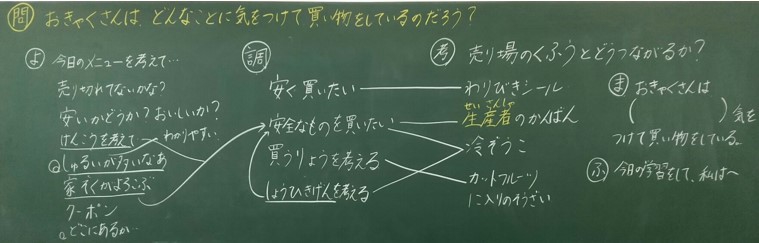 問 おきゃくさんは、どんなことに気をつけて買い物をしているのだろう?
よ 今日のメニューを考えて…
売り切れてないかな?
安いかどうか?おいしいか?
けんこうを考えて
わかりやすい
しゅるいが多いなあ
家ぞくがよろこぶ
クーポン
どこにあるか…
調
安く買いたい
安全なものを買いたい
買うりょうを考える
しょうひきげんを考える
考 売り場のくふうとどうつながるか?
わりびきシール
せいさんしゃ
生産者のかんばん
冷ぞうこ
カットフルーツ
に入りのそうざい
ま おきゃくさんは
( )気を
つけて買い物をしている。
ふ 今日の学習をして、私は〜